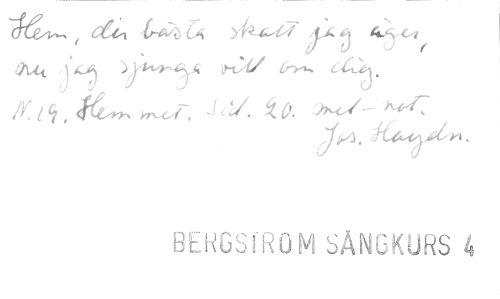 Hem, du bästa skatt jag äger,
nu jag sjunga vill om dig.
N. 19. Hemmet. Sid. 20. mel-not.
Jos. Haydn.
BERGSTRÖM SÅNGKURS 4